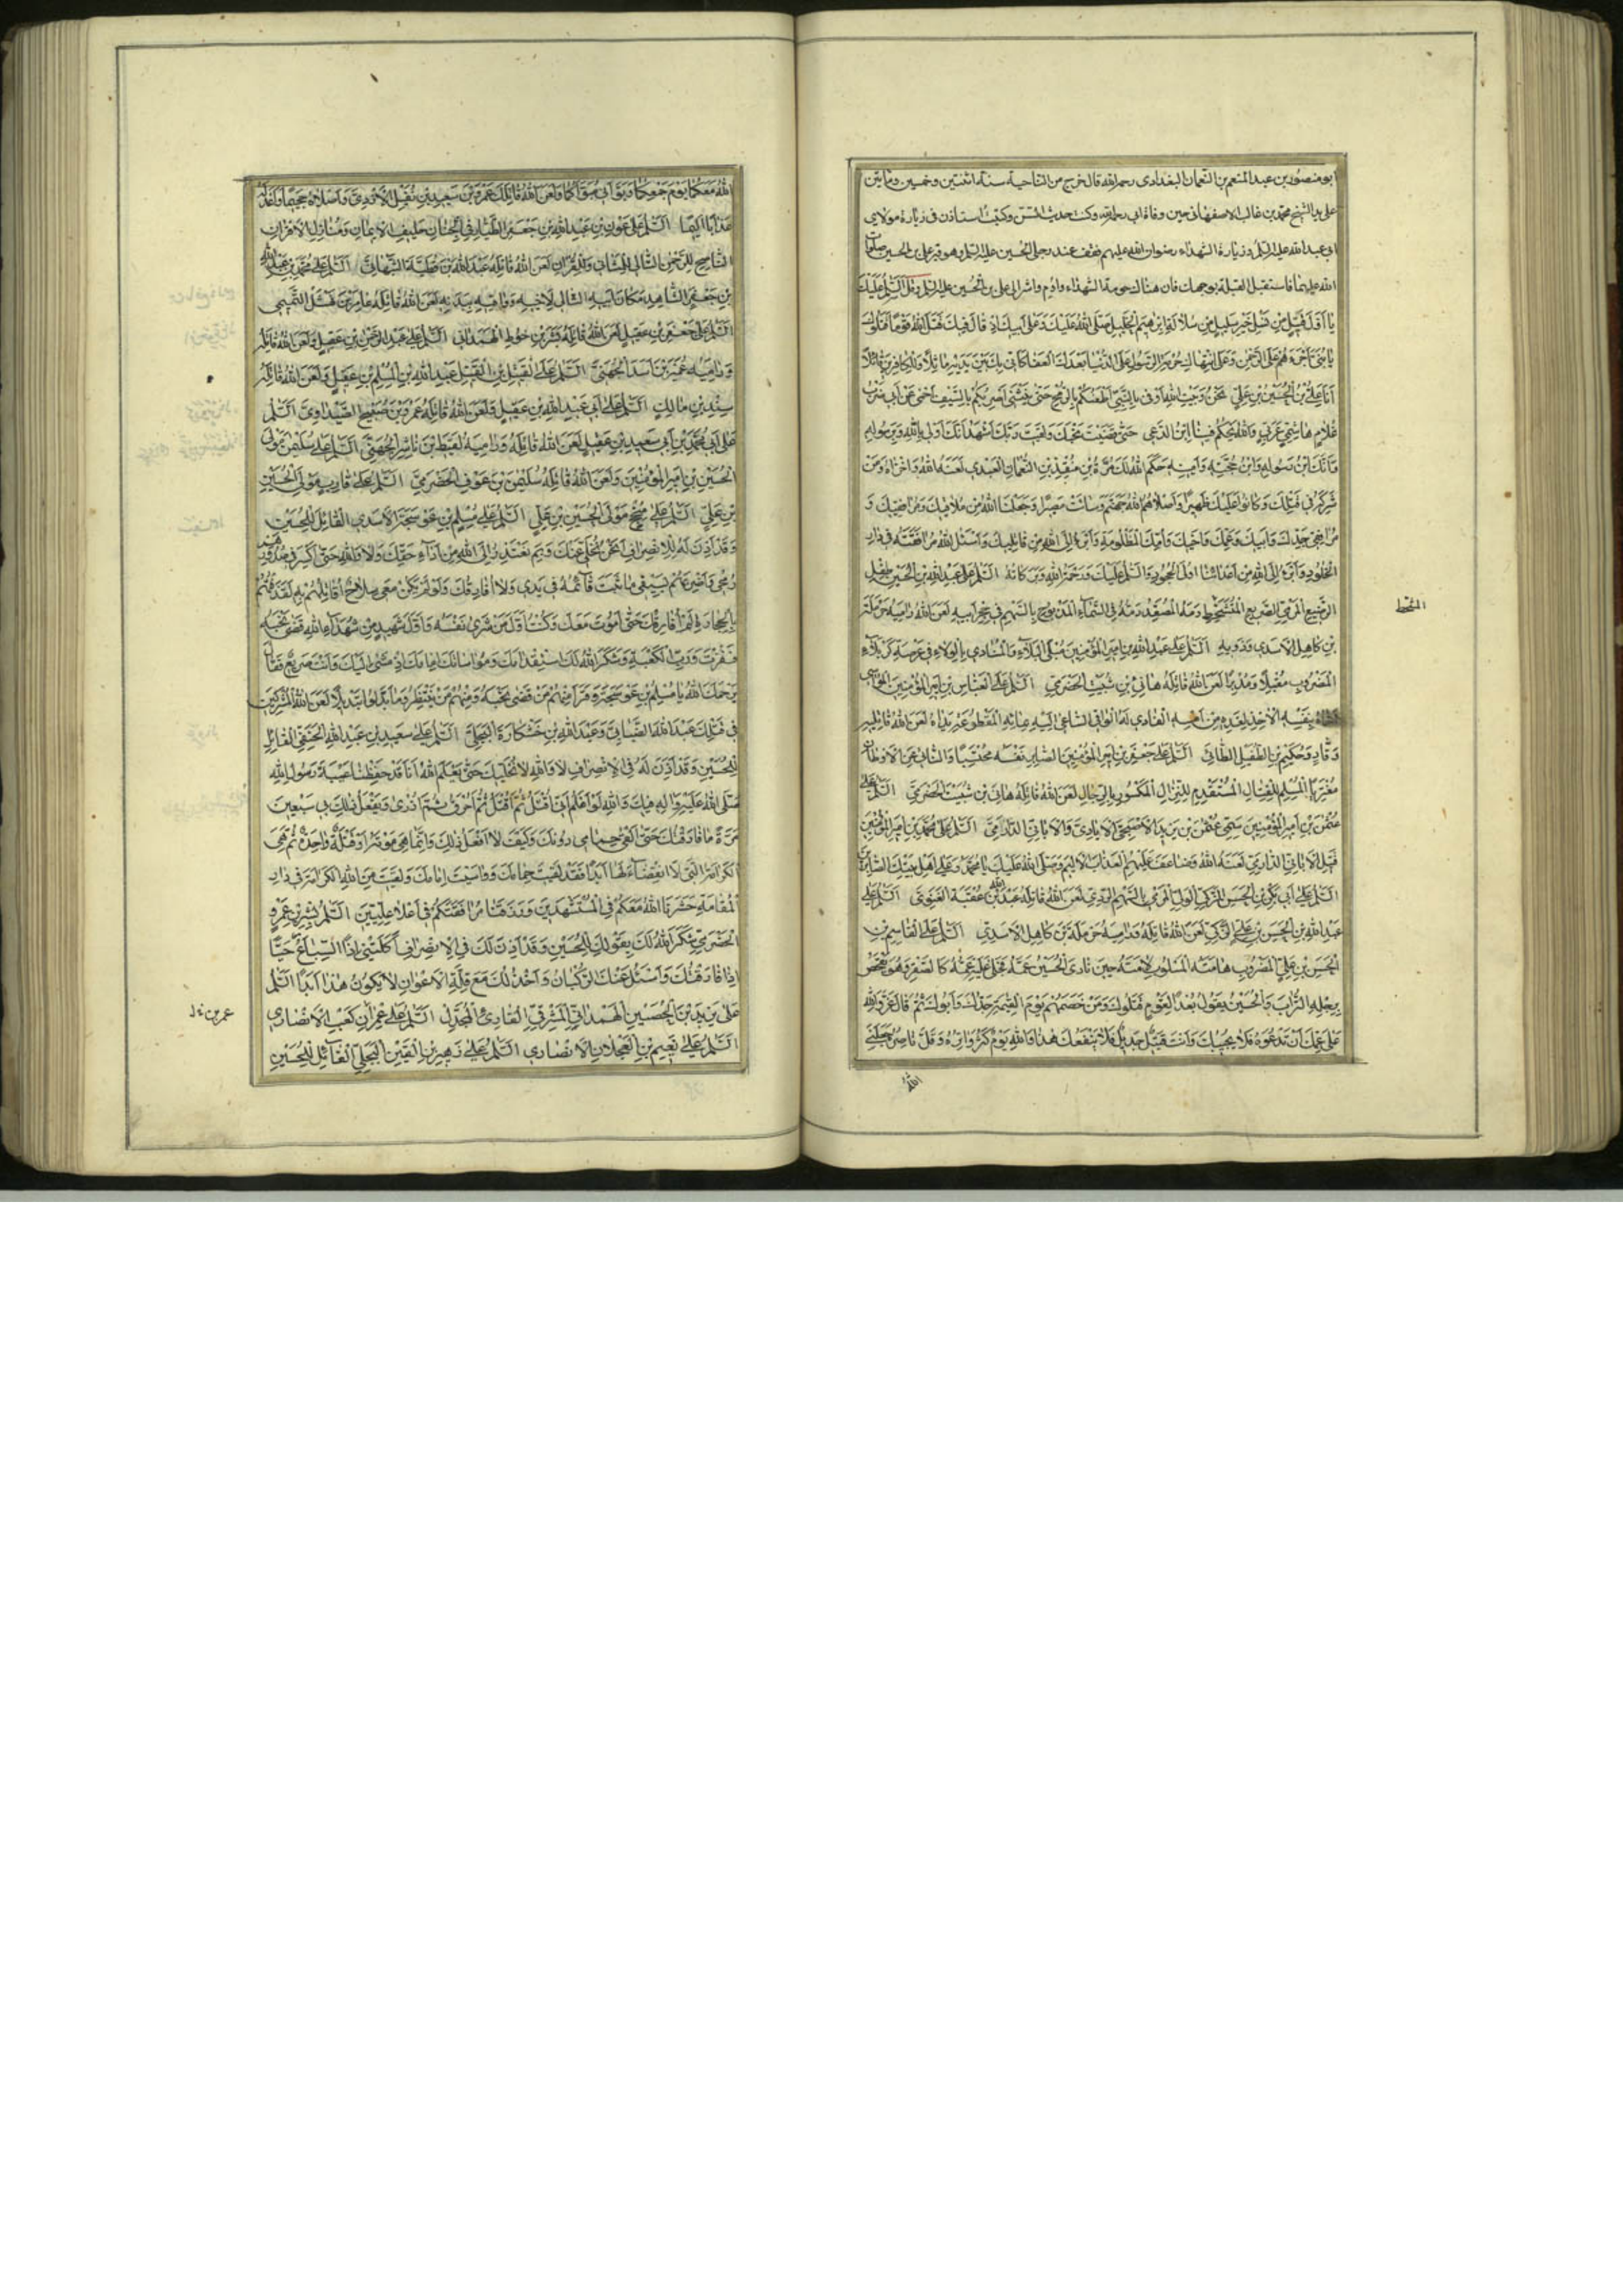 ابو منصور بن عبد المنعم بن النعمان البغدادی رحمه الله قال خرج من الناحیة سنة اثنتین و خمسین و مأتین
علی ید الشیخ محمد بن غالب الاصفهانی حین وفاة ابی رحمه الله و کنت حدیث السن و کتبت استاذن فی زیارة مولای
ابی عبد الله علیه السلم و زیارة الشهداء رضوان الله علیهم فقف عند رجلی الحسین علیه السلم و هو قبر علی بن الحسین صلوات
الله علیهما فاستقبل القبلة بوجهک فان هنالک حومة الشهداء و اوم و اشر الی علی بن الحسین علیه السلم و قل السلم علیک
یا اول قتیل من نسل خیر سلیل من سلالة ابرهیم الخلیل صلی الله علیک و علی ابیک اذ قال فیک قتل الله قوما قتلوک
یا بنی ما اجرءهم علی الرحمن و علی انتهاک حرمة الرسول علی الدنیا بعدک العفا کانی بک بین یدیه ماثلا و للکافرین قائلا
انا علی بن الحسین بن علی نحن و بیت الله اولی بالنبی اطعنکم بالرمح حتی ینثنی اضربکم بالسیف احمی عن ابی ضرب
غلام هاشمی عربی و الله لا یحکم فینا ابن الدعی حتی قضیت نحبک و لقیت ربک اشهد انک اولی بالله و برسوله
و انک ابن رسوله و ابن حجته و امینه حکم الله لک مرة بن منقذ بن النعمان العبدی لعنه الله و اخزاه و من
شرکه فی قتلک و کانوا علیک ظهیرا و اصلاهم الله جهنم و سائت مصیرا و جعلنا الله من ملاقیک و مرافقیک و
مرافقی جدک و ابیک و عمک و اخیک و امک المظلومة و ابرء الی الله من قاتلیک و اسئل الله مرافقتک فی دار
الخلود و ابرء الی الله من اعدائک اولی الجحود و السلم علیک و رحمة الله و برکاته السلم علی عبد الله بن الحسین الطفل
الرضیع المرمی الصریع المتشحط دما المصعد دمه فی السماء المذبوح بالسهم فی حجر ابیه لعن الله رامیه حرملة
بن کاهل الاسدی و ذویه السلم علی عبد الله بن امیر المؤمنین مبلی البلاء و المنادی بالولاء فی عرصة کربلاء
المضروب مقبلا و مدبرا لعن الله قاتله هانی بن ثبیت الحضرمی السلم علی العباس بن امیر المؤمنین المواسی
اخاه بنفسه الاخذ لغده من امسه الفادی له الواقی الساعی الیه بمائه المقطوعة یداه لعن الله قاتلیه
وقاد و حکیم بن الطفیل الطائی السلم علی جعفر بن امیر المؤمنین الصابر نفسه محتسبا و النائی عن الاوطان
مغتربا المستسلم للقتال المستقدم للنزال المکسور بالرجال لعن الله قاتله هانی بن ثبیت الحضرمی السلم علی
عثمن بن امیر المؤمنین سمی عثمن بن مظعون السلم علی محمد بن امیر المؤمنین
قتیل الابانی الدارمی لعنه الله و ضاعف علیهم العذاب الالیم و صلی الله علیک یا محمد و علی اهل بیتک الصابرین
السلم علی ابی بکر بن الحسن الزکی الولی المرمی بالسهم الردی لعن الله قاتله عبد الله بن عقبة الغنوی السلم علی
عبد الله بن الحسن بن علی الزکی لعن الله قاتله و رامیه حرملة بن کاهل الاسدی السلم علی القاسم بن
الحسن بن علی المضروب هامته المسلوب لامته حین نادی الحسین عمه فجلی علیه عمه کالصقر و هو یفحص
برجله التراب و الحسین یقول بعدا لقوم قتلوک و من خصمهم یوم القیمة جدک و ابوک ثم قال عز و الله
علی عمک ان تدعوه فلا یجیبک و انت قتیل جدیل فلا ینفعک هذا و الله یوم کثر واتره و قل ناصره جعلنی
الله
المشحط
الله معکما یوم جمعکما و بوأنی مبوأکما و لعن الله قاتلک عمرو بن سعید بن نفیل الازدی و اصلاه جحیما و اعد له
عذابا الیما السلم علی عون بن عبد الله بن جعفر الطیار فی الجنان حلیف الایمان و منازل الاقران
الناصح للرحمن التالی للمثانی و القران لعن الله قاتله عبد الله بن قطبة النبهانی السلم علی محمد بن عبد الله
بن جعفر الشاهد مکان ابیه التالی لاخیه و واقیه ببدنه لعن الله قاتله عامر بن نهشل التمیمی
السلم علی جعفر بن عقیل لعن الله قاتله بشر بن خوط الهمدانی السلم علی عبد الرحمن بن عقیل و لعن الله قاتله
و رامیه عمیر بن اسد الجهنی السلم علی القتیل بن القتیل عبد الله بن المسلم بن عقیل و لعن الله قاتله
السلم علی ابی عبید الله بن عقیل و لعن الله قاتله عمرو بن صبیح الصیداوی السلم
علی ابی محمد بن ابی سعید بن عقیل لعن الله قاتله و رامیه لقیط بن ناشر الجهنی السلم علی سلیمن مولی
الحسین بن امیر المؤمنین و لعن الله قاتله سلیمن بن عوف الحضرمی السلم علی قارب مولی الحسین
بن علی السلم علی منجح مولی الحسین بن علی السلم علی مسلم بن عوسجة الاسدی القائل للحسین
و قد اذن له فی الانصراف انحن نخلی عنک و بم نعتذر الی الله من اداء حقک و لا و الله حتی اکسر فی صدورهم
رمحی و اضربهم بسیفی ما ثبت قائمه فی یدی و لا افارقک و لو لم یکن معی سلاح اقاتلهم به لقذفتهم
بالحجارة ثم لم افارقک حتی اموت معک و کنت اول من شری نفسه و اول شهید من شهداء الله قضی نحبه
ففزت و رب الکعبة و شکر الله لک استقدامک و مواساتک امامک اذ مشی الیک و انت صریع فقال
یرحمک الله یا مسلم بن عوسجة و قرأ فمنهم من قضی نحبه و منهم من ینتظر و ما بدلوا تبدیلا لعن الله المشترکین
فی قتلک عبد الله الضبابی و عبد الله بن خشکارة البجلی السلم علی سعید بن عبد الله الحنفی القائل
للحسین و قد اذن له فی الانصراف لا و الله لا نخلیک حتی یعلم الله انا قد حفظنا غیبة رسول الله
صلی الله علیه و اله فیک و الله لو اعلم انی اقتل ثم اقتل ثم احرق ثم اذری و یفعل ذلک بی سبعین
مرة ما فارقتک حتی القی حمامی دونک و کیف لا افعل ذلک و انما هی موتة او قتلة واحدة ثم هی
الکرامة التی لا انقضاء لها ابدا فقد لقیت حمامک و واسیت امامک و لقیت من الله الکرامة فی دار
المقامة حشرنا الله معکم فی المستشهدین و رزقنا مرافقتکم فی اعلا علیین السلم علی بشر بن عمرو
الحضرمی شکر الله لک بقولک للحسین و قد اذن لک فی الانصراف اکلتنی اذا السباع حیا
اذا فارقتک و اسئل عنک الرکبان و اخذلک مع قلة الاعوان لا یکون هذا ابدا السلم
علی یزید بن الحصین الهمدانی المشرقی القاری المجدل السلم علی عمران کعب الانصاری
السلم علی نعیم بن العجلان الانصاری السلم علی زهیر بن القین البجلی القائل للحسین
عمر بن